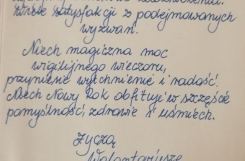 satysfakcji z podejmowanych
wyzwań.
Niech magiczna moc
wigilijnego wieczoru,
przyniesie wytchnienie i radość.
Niech Nowy Rok obfituje w szczęście
pomyślność, zdrowie i uśmiech.
Życzą
Wolontariusze